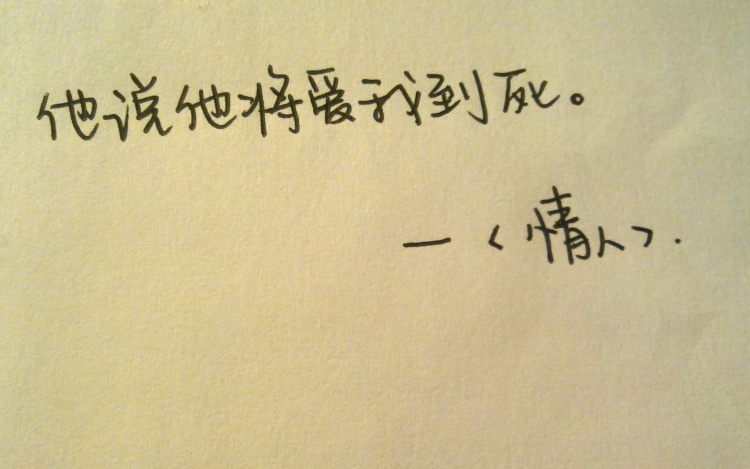 他说他将爱我到死。
—<情人>.